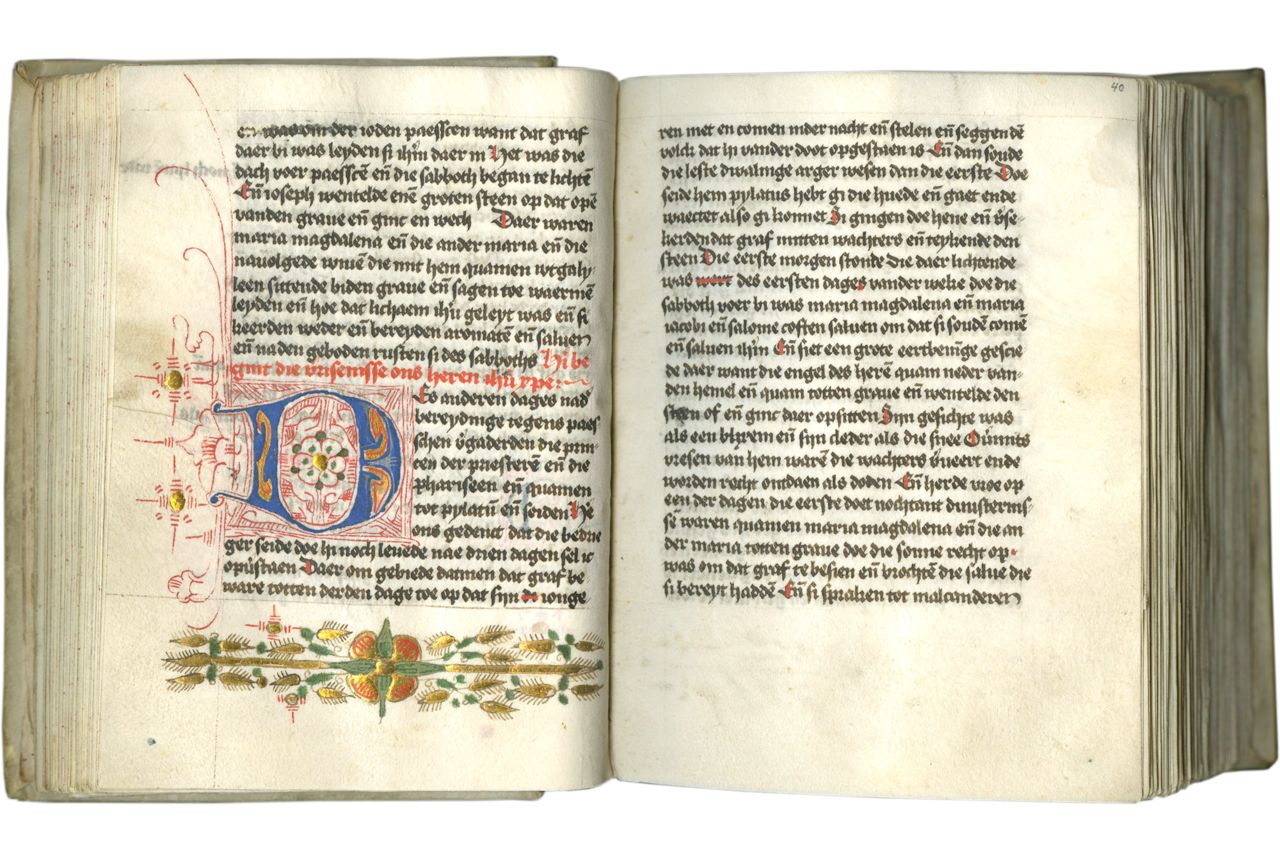 en was om der ioden paesscen want dat graf
daer bi was leyden si ihm daer in Het was die
dach voer paesscē eñ die sabboth began te lichtē
Eñ ioseph wentelde enē groten steen op dat opē
vanden graue eñ ginc en wech Daer waren
maria magdalena eñ die ander maria eñ die
nauolgede wiuē die mit hem quamen wt galy
leen sittende biden graue eñ sagen toe waermē
leyden eñ hoe dat lichaem ihū geleyt was eñ si
keerden weder eñ bereyden aromatē eñ saluen
eñ naden geboden rusten si des sabboths Hi be
gint die vrisenisse ons heren ihū xpe
Des anderen dages nad
bereydinge tegens paes
schen v̄gaderden die prin
cen der priesterē eñ die
phariseen eñ quamen
tot pylatū eñ seiden He
ons gedenct dat die bedrie
ger seide doe hi noch leuede nae drien dagen sel ic
opūstaen Daer om gebiede datmen dat graf be
ware totten derden dage toe op dat sijn di ionge
40
ren niet en comen inder nacht eñ stelen eñ seggen dē
volck dat hi vander doot opgestaen is Eñ dan soude
die leste dwalinge arger wesen dan die eerste Doe
seide hem pylatus hebt gi die huede eñ gaet ende
waectet also gi konnet Si gingen doe hene eñ v̄se
kerden dat graf mitten wachters eñ teykende den
steen Die eerste morgen stonde die daer lichtende
was wert des eersten dages vander weke doe die
sabboth voer bi was maria magdalena eñ maria
iacobi eñ salome coften saluen om dat si soudē comē
eñ saluen ihm Eñ siet een grote eertbeuinge gescie
de daer want die engel des herē quam neder van
den hemel eñ quam totten graue eñ wentelde den
steen of eñ ginc daer op sitten Sijn gesichte was
als een blixem eñ sijn cleder als die snee Oūmits
vresen van hem warē die wachters v̄ueert ende
worden recht ontdaen als doden Eñ herde vroe op
een der dagen die eerste doet nochtant duusternis
sē waren quamen maria magdalena eñ die an
der maria totten graue doe die sonne recht op
was om dat graf te besien eñ brochtē die salue die
si bereyt haddē Eñ si spraken tot malcanderen